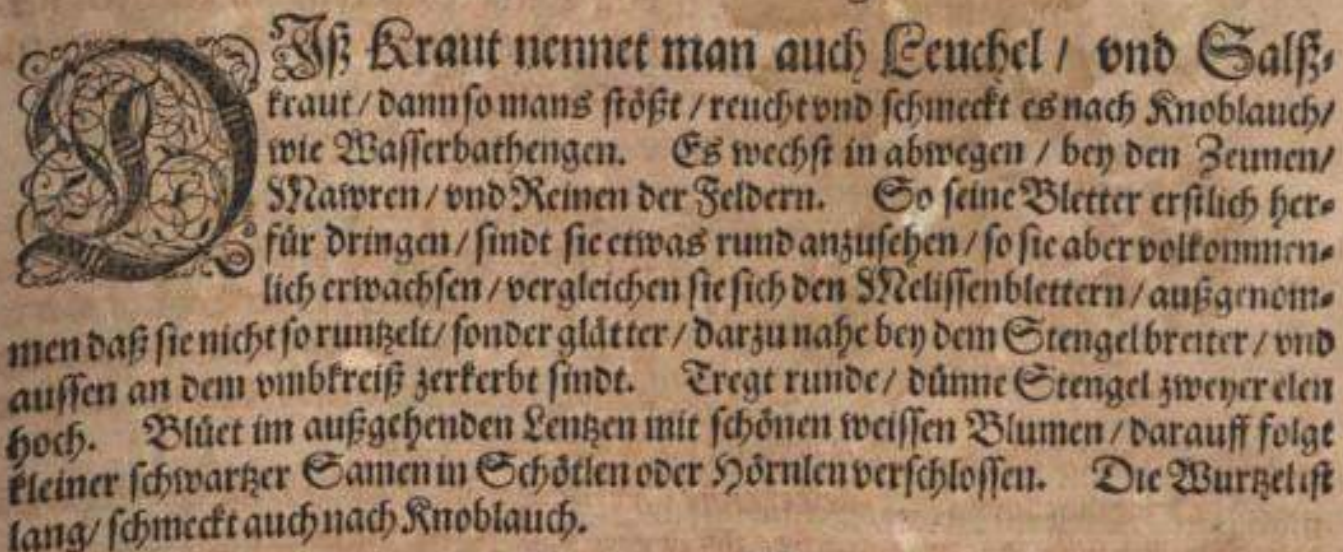 DIſz Kraut nennet man auch Leuchel / vnd Salſz⸗
kraut / dann ſo mans ſtößt / reucht vnd ſchmeckt es nach Knoblauch /
wie Waſſerbathengen. Es wechſt in abwegen / bey den Zeunen /
Mawren / vnd Reinen der Feldern. So ſeine Bletter erſtlich her⸗
für dringen / ſindt ſie etwas rund anzuſehen / ſo ſie aber volkommen⸗
lich erwachſen / vergleichen ſie ſich den Meliſſenblettern / außgenom⸗
men daß ſie nicht ſo runtzelt / ſonder glätter / darzu nahe bey dem Stengel breiter / vnd
auſſen an dem vmbkreiß zerkerbt ſindt. Tregt runde / dünne Stengel zweyer elen
hoch. Blüet im außgehenden Lentzen mit ſchönen weiſſen Blumen / darauff folgt
kleiner ſchwartzer Samen in Schötlen oder Hörnlen verſchloſſen. Die Wurtzel iſt
lang / ſchmeckt auch nach Knoblauch.